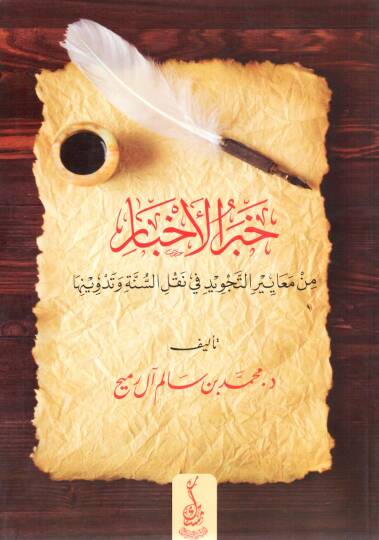 خَبَرُ الأَخْبَارِ
مِنْ مَعَايِيْرِ التَّجْوِيْدِ فِي نَقْلِ السُّنَّةِ وَتَدْوِيْنِهَا
تأليف
د. محمد بن سالم آل رميح